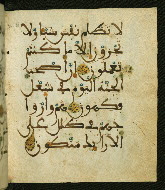 لا تظلم نفس شيئا ولا
تجزون إلا ما كنتم
تعملون إن أصحب
الجنة اليوم في شغل
فكهون هم وأزوا
جهم في ظلل على
الأرائك متكئون